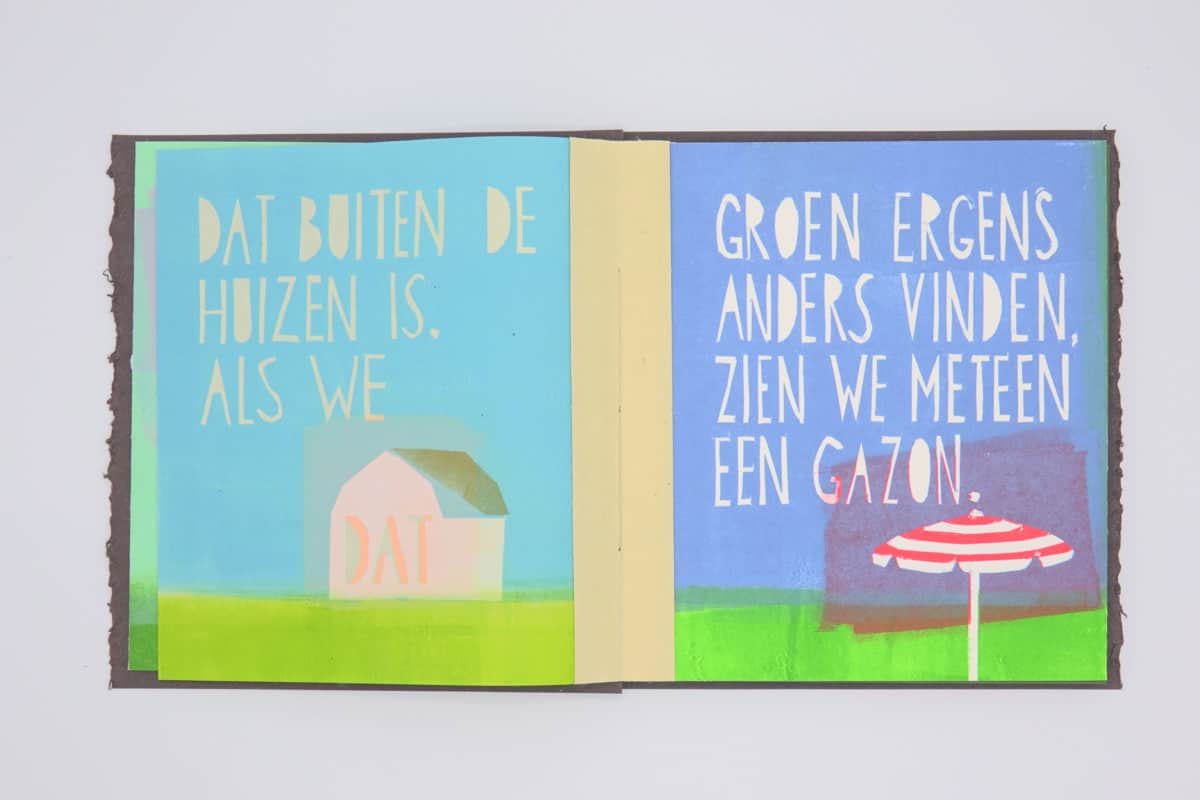 DAT BUITEN DE
HUIZEN IS.
ALS WE
DAT
GROEN ERGENS
ANDERS VINDEN,
ZIEN WE METEEN
EEN GAZON.